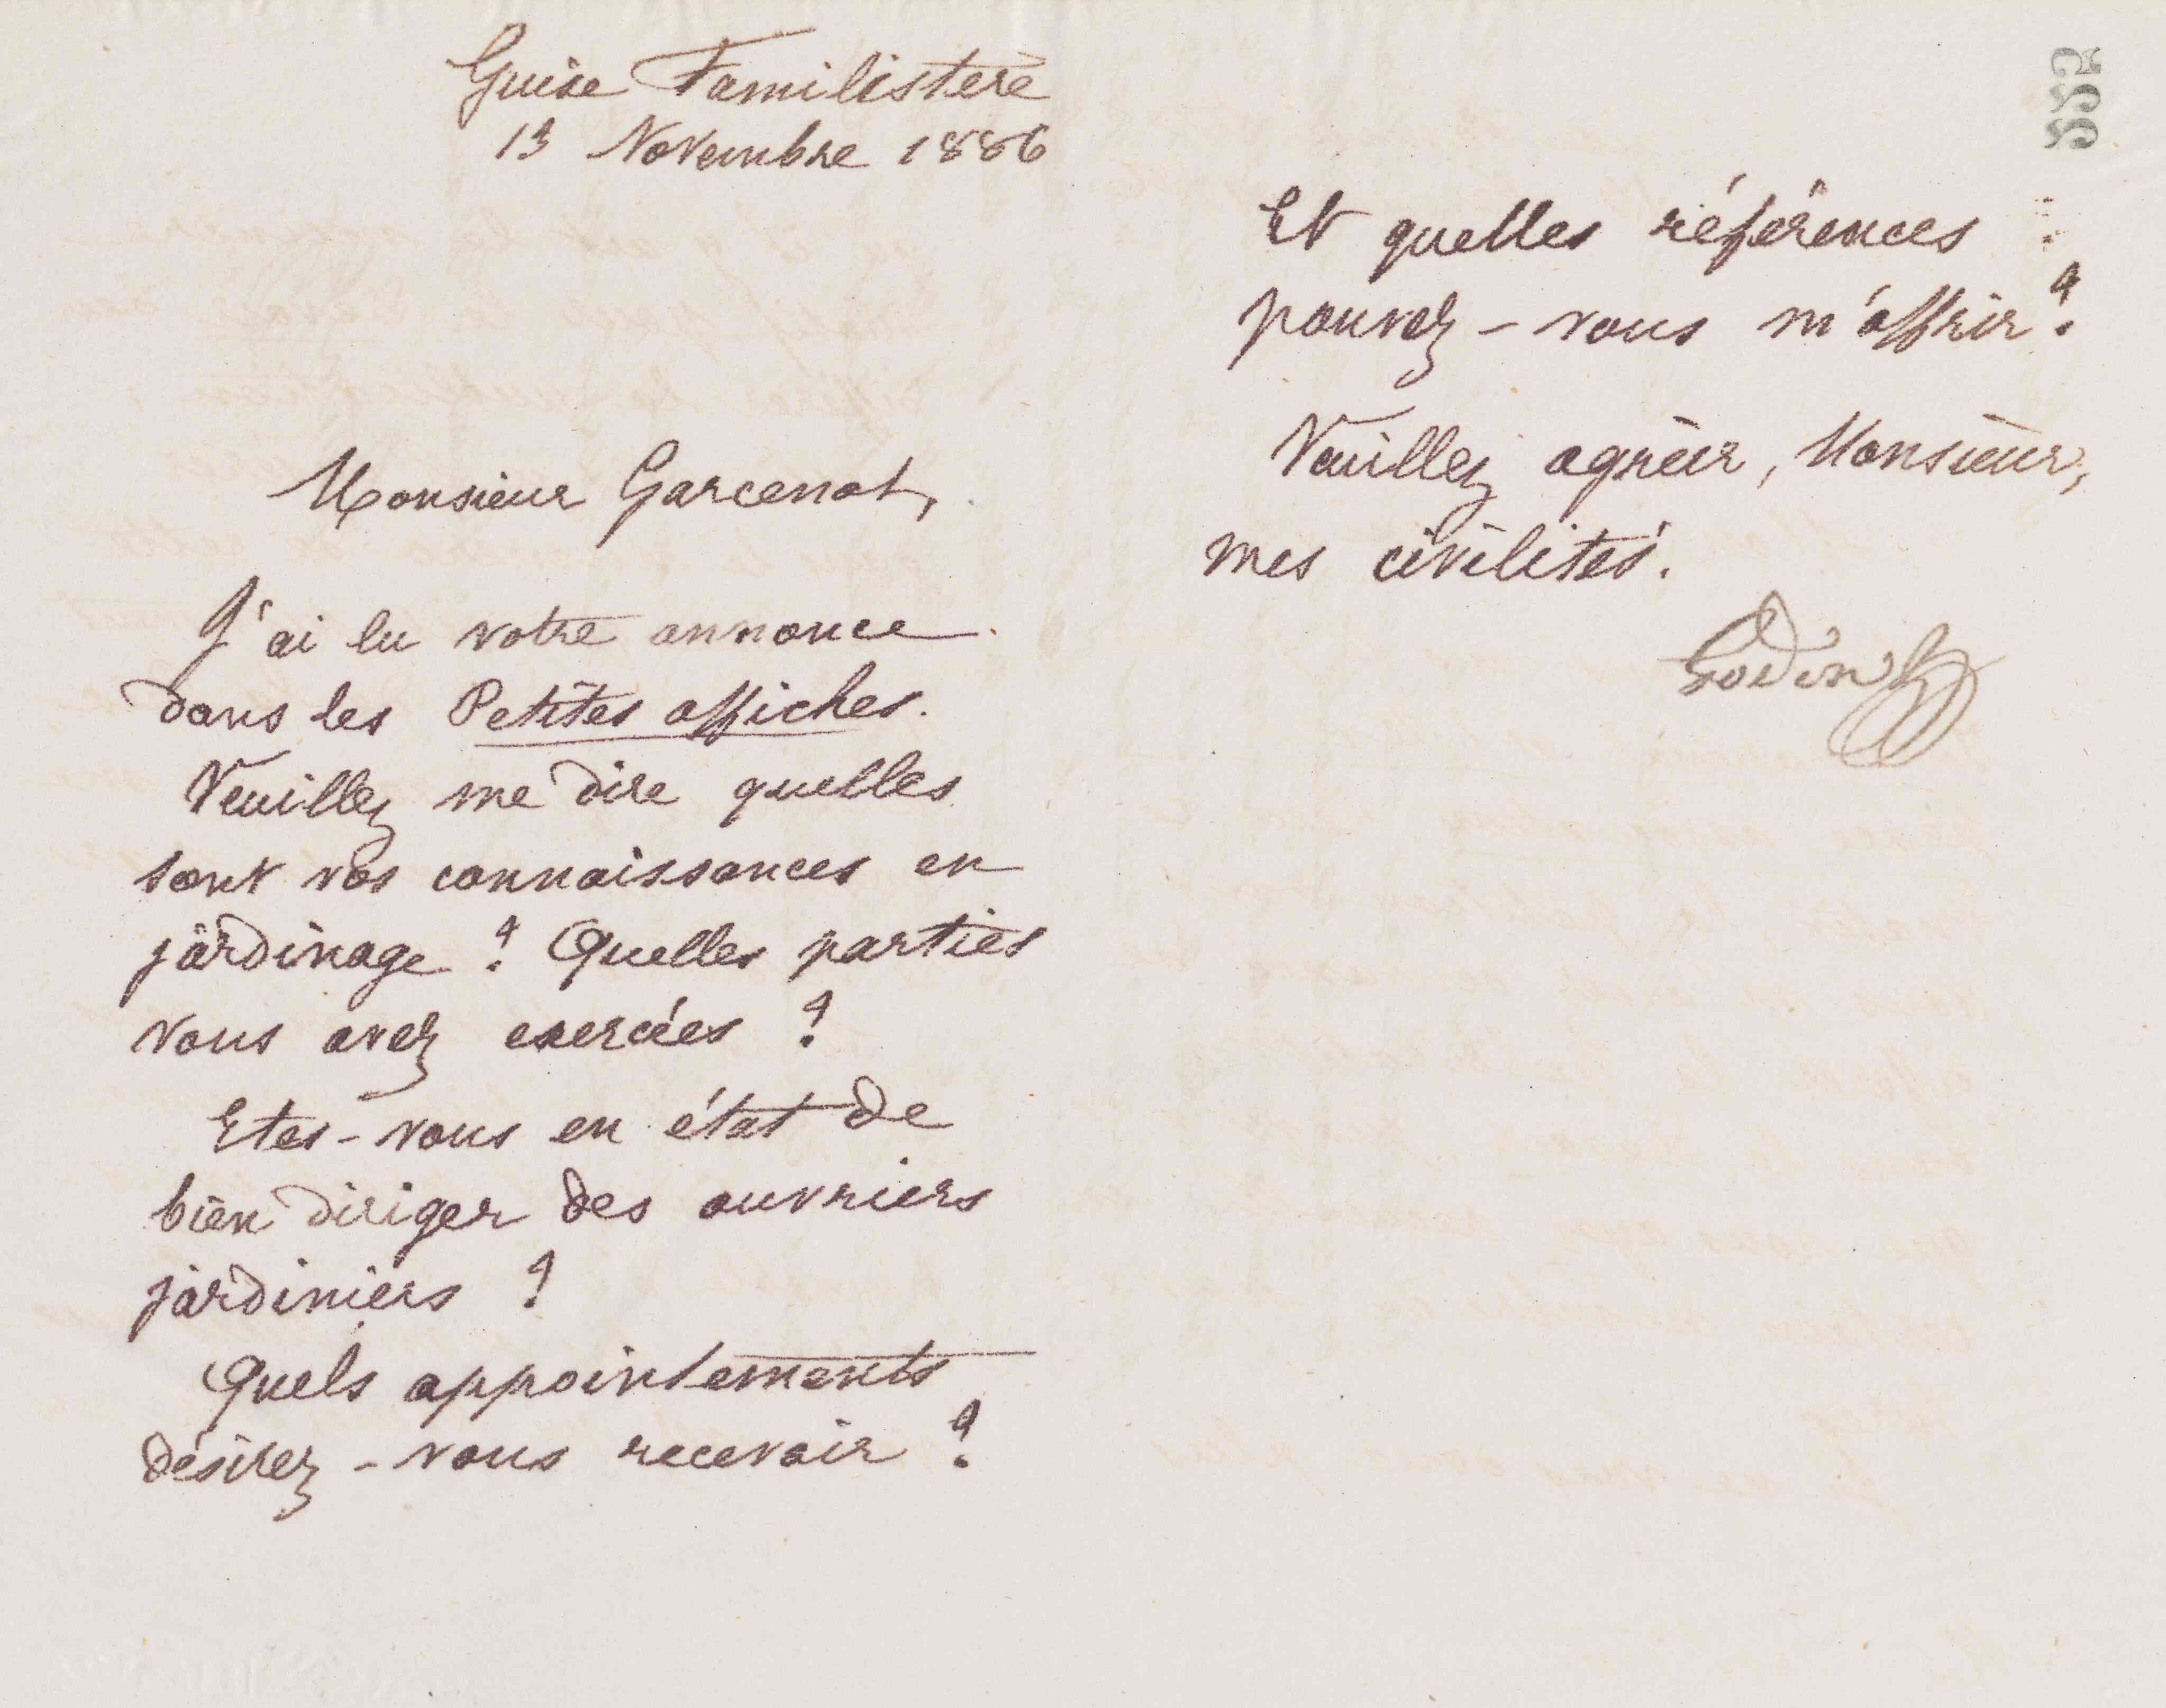 Guise Familistère
13 Novembre 1886
Monsieur Garcenot,
J'ai lu votre annonce
dans les Petites affiches.
Veuillez me dire quelles
sont vos connaissances en
jardinage ? Quelles parties
vous avez exercées ?
Etes-vous en état de
bien diriger des ouvriers
jardiniers ?
Quels appointements
désirez-vous recevoir ?
552
Et quelles références
pouvez-vous m'offrir ?
Veuillez agréer, Monsieur,
mes civilités.
Godin